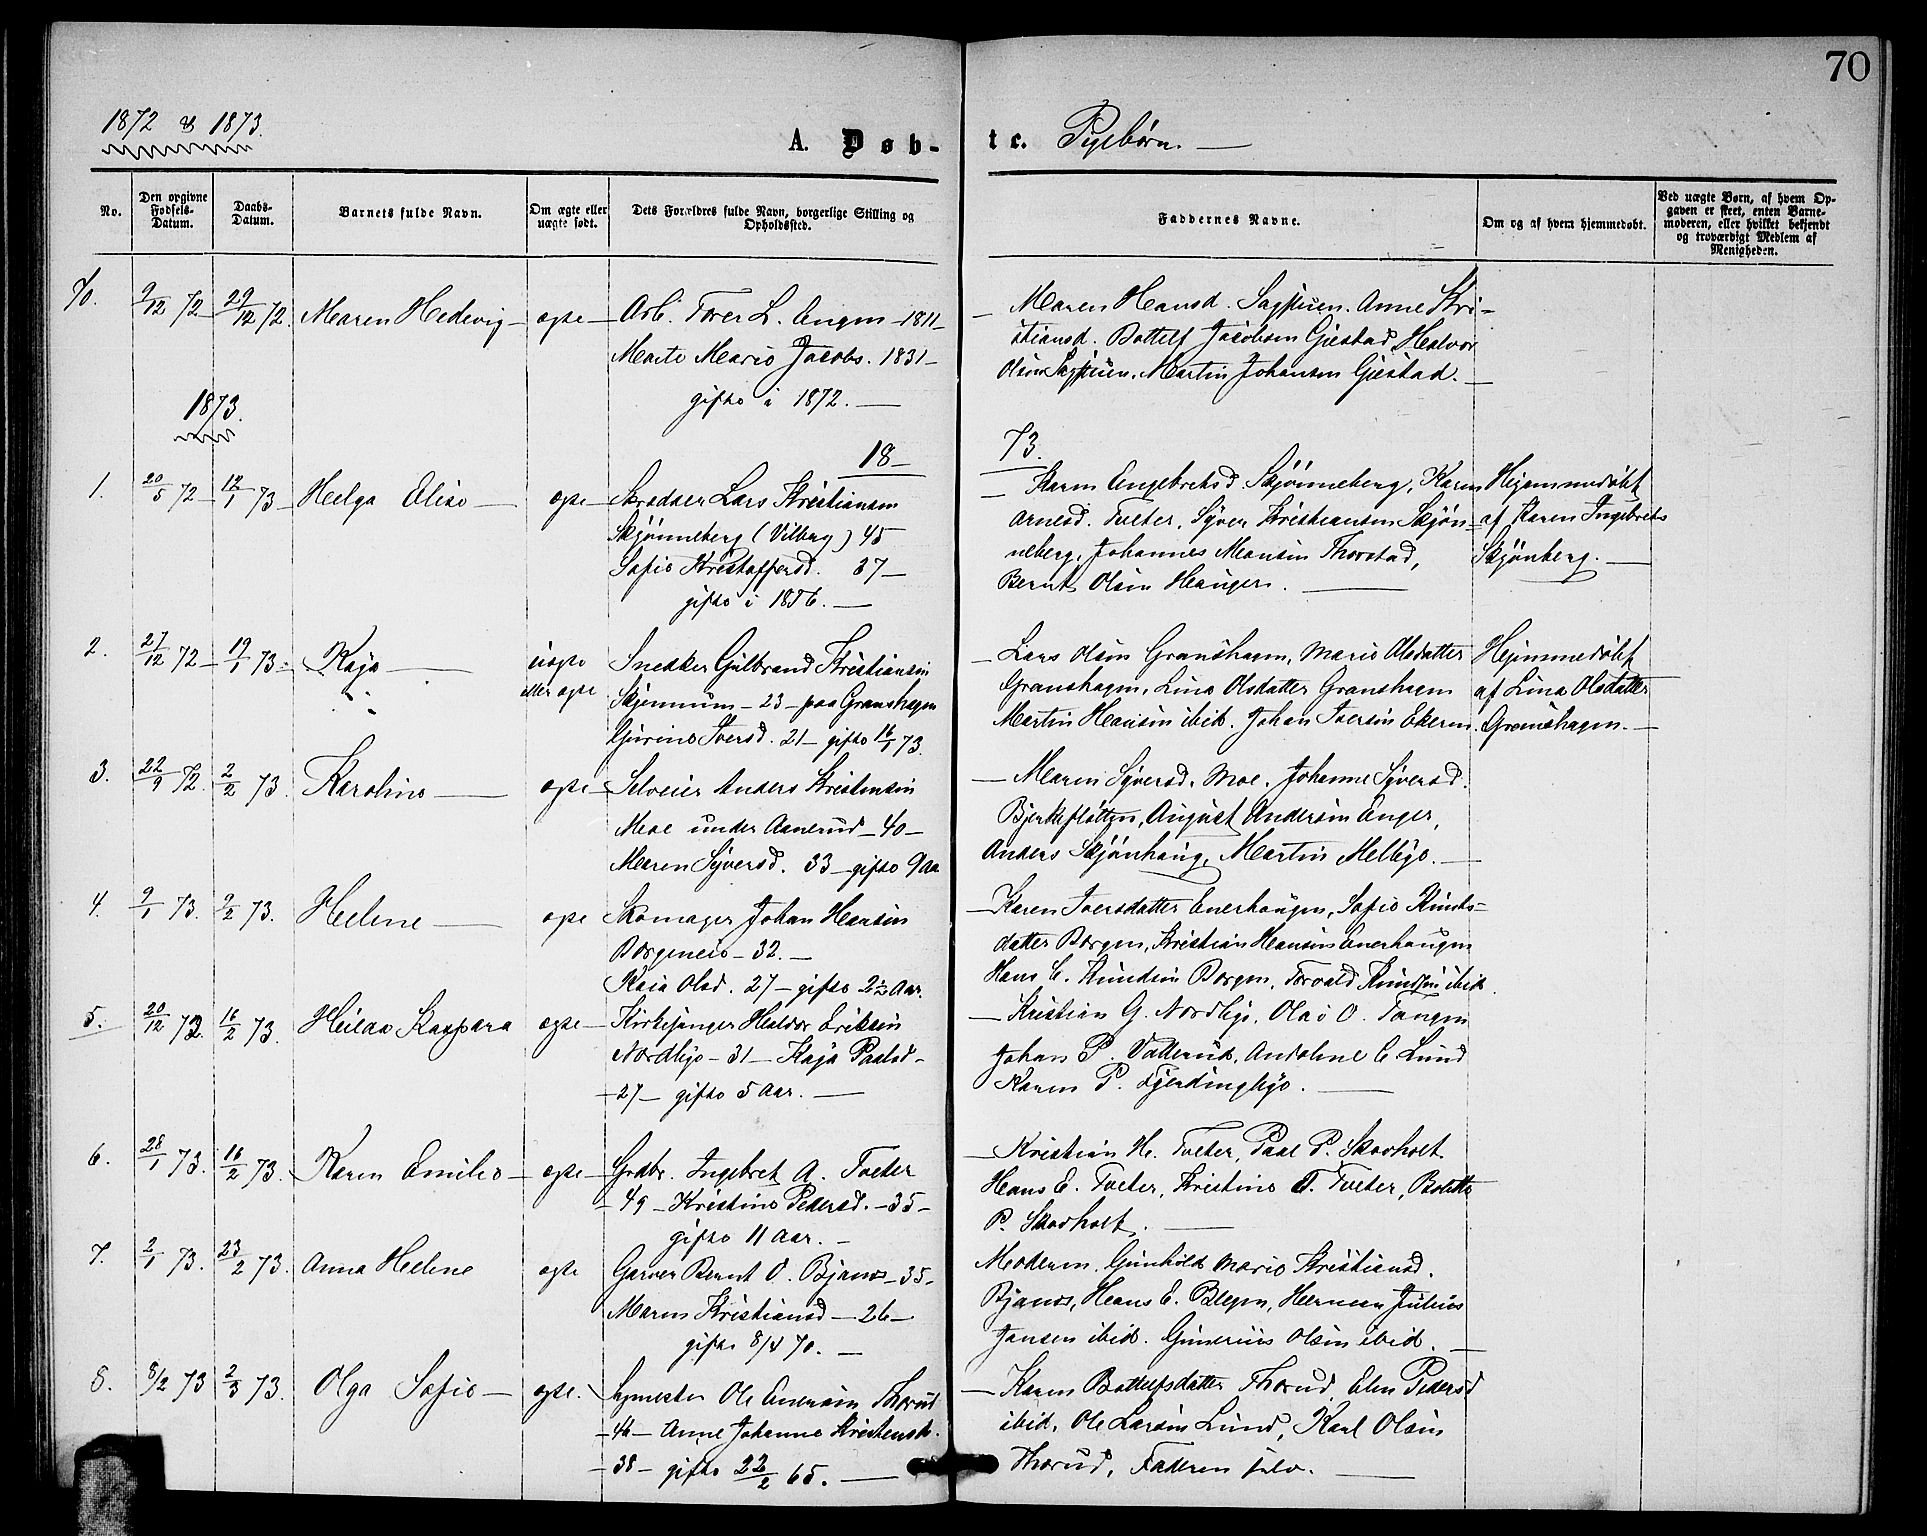 70
1872 & 1873.
A. Døb-
te. Pigebørn.
No.
Den opgivne Fødsels-Datum.
Daabs-Datum.
Barnets fulde Navn.
Om ægte eller uægte født.
Dets Forældres fulde Navn, borgerlige Stilling og Opholdssted.
Faddernes Navne.
Om og af hvem hjemmedøbt.
Ved uægte Børn, af hvem Opgaven er skeet, enten Barnemoderen, eller hvilket bekjendt og troværdigt Medlem af Menigheden.
70. 9/12 72 29/12 72. Maren Hedevig ægte Arb. Torer L. Engen 1811
Marte Marie Jacobs. 1831
gifte i 1872.
Maren Hansd. Anne Kri-
stiansd. Bottelf Jacobsen Gjestad, Halvor
Olsen Martin Johansen Gjestad.
1873.
18
73.
1. 20/5 72 12/1 73 Helga Elise ægte Skrædder Lars Kristiansen
Skjønneberg (Vilberg) 45
Sofie Kristoffersd. 37
gifte i 1856.
Karen Engebretsd. Skjønneberg, Karen
Arnesd. Tveter, Syver Kristiansen Skjøn-
neberg, Johannes Hansen Thorstad,
Bernt Olsen Haugen.
Hjemmedøbt
af Karen Ingebrets
Skjønberg.
2. 27/12 72 19/1 73. Kaja uægte
eller ægte
Snedker Gulbrand Kristiansen
Skjennum 23 paa Granshagen
Gurine Iversd. 21 gifte 16/1 73.
Lars Olsen Granshagen, Marie Olsdatter
Granshagen, Lina Olsdatter Granshagen
Martin Hansen ibid. Johan Iversen Ekern.
Hjemmedøbt
af Lina Olsdatter
Granshagen.
3. 22/9 72. 2/2 73. Karoline ægte Selveier Anders Kristensen
Moe under Aanerud 40
Maren Syversd. 33 gifte 9 Aa
Maren Syversd. Moe. Johanne Syversd.
Bjerkesletten, August Andersen Enger,
Anders Skjønhaug, Martin Melbye.
4. 9/1 73. 9/2 73. Helene ægte Skomager Johan Hansen
Borgeneie 32.
Kaia Olsd. 27 gifte 2½ Aar.
Karen Iversdatter Enerhaugen, Sofie Knuds-
datter Borgen, Kristian Hansen Enerhaugen
Hans C. Knudsen Borgen, Torvald Knudsen ibid.
5. 20/12 72. 16/2 73. Hilda Kaspara ægte Kirkesanger Halvor Eriksen
Nordbye 31 Kaja Paalsd
27 gifte 5 Aar.
Kristian G. Nordbye, Olai O. Tangen
Johan P. Vallerud, Andoline C. Lund
Karen P. Fjerdingbye.
6. 28/1 73. 16/2 73. Karen Emilie ægte Grdbr. Ingebret A. Tveter
49 Kristine Pedersd. 35
gifte 11 Aar.
Kristian H. Tveter, Paal P. Skovholt
Hans E. Tveter, Kristine T. Tveter, Bolette
P. Skovholt.
7. 2/1 73. 23/2 73. Anna Helene ægte Garver Bernt O. Bjanes 35
Maren Kristiansd 26
gifte 8/4 70.
Moderen. Gunhild Marie Kristiansd.
Bjanes, Hans E. Blegen, Herman Julius
Jansen ibid. Gunerius Olsen ibid.
8. 8/2 73 2/3 73. Olga Sofie ægte. Ole Enersen Thorud
46 Anne Johanne Kristensd.
38 gifte 22/2 65.
Karen Bottelfsdatter Thorud, Elen Pedersd
ibid, Ole Larsen Lund, Karl Olsen
Thorud, Faderen selv.